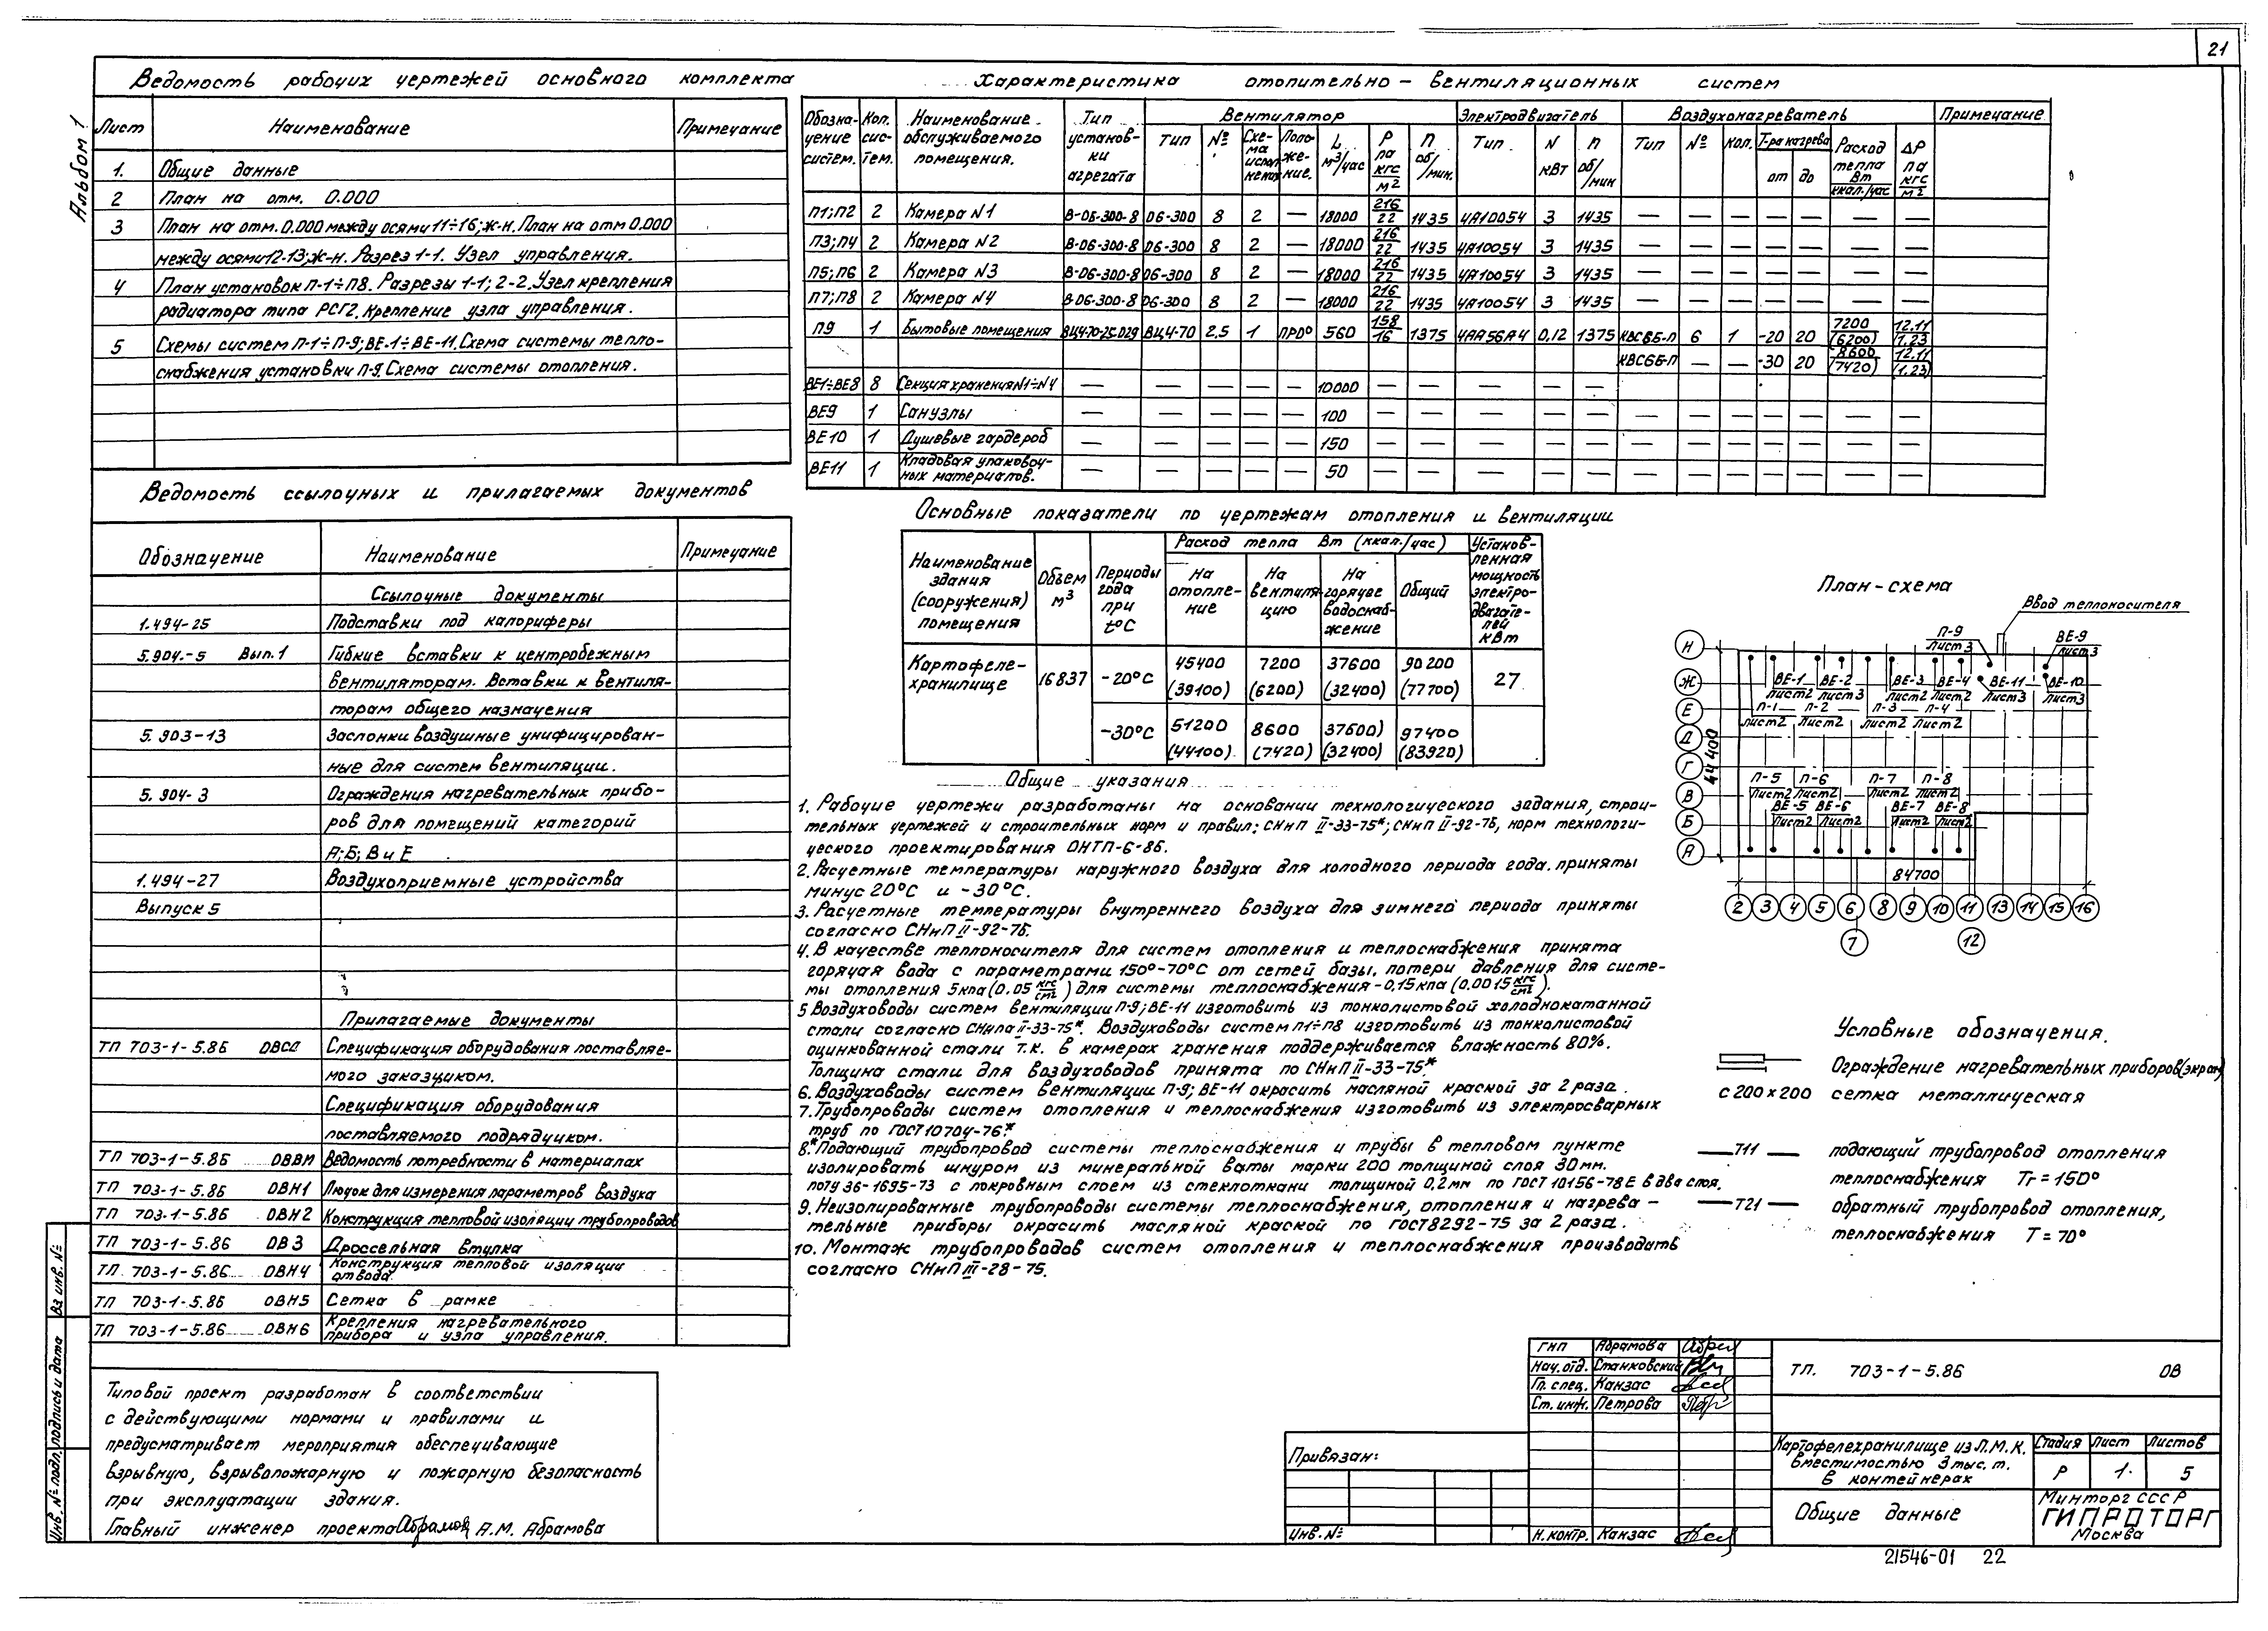 21
Альбом 1
Ведомость рабочих чертежей основного комплекта
Лист Наименование Примечание
1. Общие данные
2 План на отм. 0.000
3 План на отм. 0.000 между осями 11÷16; ж-н. План на отм 0.000
между осями 12-13; ж-н. Разрез 1-1. Узел управления.
4 План установок П-1÷П8. Разрезы 1-1; 2-2. Узел крепления
радиатора типа РСГ2. Крепление узла управления.
5 Схемы систем П-1÷П-9; ВЕ-1÷ВЕ-11. Схема системы тепло-
снабжения установки П-9. Схема системы отопления.
Ведомость ссылочных и прилагаемых документов
Обозначение Наименование Примечание
Ссылочные документы
1.494-25 Подставки под калориферы
5.904.-5 Вып.1 Гибкие вставки к центробежным
вентиляторам. Вставки к вентиля-
торам общего назначения
5.903-13 Заслонки воздушные унифицирован-
ные для систем вентиляции.
5.904-3 Ограждения нагревательных прибо-
ров для помещений категорий
А; Б; В и Е
1.494-27 Воздухоприемные устройства
Выпуск 5
Прилагаемые документы
ТП 703-1-5.86 ОВСО Спецификация оборудования поставляе-
мого заказщиком.
Спецификация оборудования
поставляемого подрядчиком.
ТП 703-1-5.86 ОВВМ Ведомость потребности в материалах
ТП 703-1-5.86 ОВН1 Лючок для измерения параметров воздуха
ТП 703-1-5.86 ОВН2 Конструкция тепловой изоляции трубопроводов
ТП 703-1-5.86 ОВ3 Дроссельная втулка
ТП. 703-1-5.86 ОВН4 Конструкция тепловой изоляции
отвода.
ТП 703-1-5.86 ОВН5 Сетка в рамке
ТП 703-1-5.86 ОВН6 Крепления нагревательного
прибора и узла управления.
Типовой проект разработан в соответствии
с действующими нормами и правилами и
предусматривает мероприятия обеспечивающие
взрывную, взрывопожарную и пожарную безопасность
при эксплуатации здания.
Главный инженер проекта Абрамов А.М. Абрамова
Характеристика отопительно-вентиляционных систем
Обозна- Кол. Наименование Тип Вентилятор Электродвигатель Воздухонагреватель Примечание
чение сис- обслуживаемого установ- Тип № Схе- Поло- L P n Тип N n Тип № Кол. Т-ра нагрева Расход ΔР
систем. тем. помещения. ки ма же- м³/час па об/ кВт об/ от до тепла па
агрегата испол ние. кгс мин. мин Вт кгс
нения м² ккал/час м²
П1;П2 2 Камера N1 В-06-300-8 06-300 8 2 — 18000 216/22 1435 4А100S4 3 1435 — — — — — — —
П3;П4 2 Камера N2 В-06-300-8 06-300 8 2 — 18000 216/22 1435 4А100S4 3 1435 — — — — — — —
П5;П6 2 Камера N3 В-06-300-8 06-300 8 2 — 18000 216/22 1435 4А100S4 3 1435 — — — — — — —
П7;П8 2 Камера N4 В-06-300-8 06-300 8 2 — 18000 216/22 1435 4А100S4 3 1435 — — — — — — —
П9 1 Бытовые помещения ВЦ4-70-2.5.029 ВЦ4-70 2,5 1 ПР0° 560 158/16 1375 4АА56А4 0,12 1375 КВС6Б-П 6 1 -20 20 7200 (6200) 12.11 (1.23
КВС6Б-П — — -30 20 8600 (7420) 12.11 (1.23)
ВЕ1÷ВЕ8 8 Секция хранения N1÷N4 — — — — — 10000 — — — — — — — — — — — —
ВЕ9 1 Санузлы — — — — — 100 — — — — — — — — — — — —
ВЕ10 1 Душевые гардероб — — — — — 150 — — — — — — — — — — — —
ВЕ11 1 Кладовая упаковоч-
ных материалов. — — — — — 50 — — — — — — — — — — — —
Основные показатели по чертежам отопления и вентиляции
Наименование здания (сооружения) помещения Объем м³ Периоды года при t°С Расход тепла Вт (ккал./час) Установ-ленная мощность электро-двигате-лей кВт
На отопле-ние На вентиля-цию На горячее водоснаб-жение Общий
Картофеле- 16837 -20°С 45400 7200 37600 90200 27
хранилище (39100) (6200) (32400) (77700)
-30°С 51200 8600 37600) 97400
(44100). (7420) (32400) (83920)
Общие указания
1. Рабочие чертежи разработаны на основании технологического задания, строи-
тельных чертежей и строительных норм и правил; СНиП II-33-75*; СНиП II-92-76, норм технологи-
ческого проектирования ОНТП-6-86.
2. Расчетные температуры наружного воздуха для холодного периода года. приняты
минус 20°С и -30°С.
3. Расчетные температуры внутреннего воздуха для зимнего периода приняты
согласно СНиП II-92-76.
4. В качестве теплоносителя для систем отопления и теплоснабжения принята
горячая вода с параметрами 150°-70°С от сетей базы, потери давления для систе-
мы отопления 5кпа (0.05 кгс/см²) для системы теплоснабжения - 0,15кпа (0.0015 кгс/см²).
5 Воздуховоды систем вентиляции П-9; ВЕ-11 изготовить из тонколистовой холоднокатанной
стали согласно СНиПа II-33-75*. Воздуховоды систем П1÷П8 изготовить из тонколистовой
оцинкованной стали т.к. в камерах хранения поддерживается влажность 80%.
Толщина стали для воздуховодов принята по СНиП II-33-75*
6. Воздуховоды систем вентиляции П-9; ВЕ-11 окрасить масляной краской за 2 раза.
7. Трубопроводы систем отопления и теплоснабжения изготовить из электросварных
труб по ГОСТ 10704-76*
8.* Подающий трубопровод системы теплоснабжения и трубы в тепловом пункте
изолировать шнуром из минеральной ваты марки 200 толщиной слоя 30мм.
поту 36-1695-73 с покровным слоем из стеклоткани толщиной 0,2мм по ГОСТ 10156-78Е в два слоя.
9. Неизолированные трубопроводы системы теплоснабжения, отопления и нагрева-
тельные приборы окрасить масляной краской по ГОСТ 8292-75 за 2 раза.
10. Монтаж трубопроводов систем отопления и теплоснабжения производить
согласно СНиП III-28-75.
План-схема
Ввод теплоносителя
П-9 Лист 3 ВЕ-9 Лист 3
Н
Ж
Е
Д
Г
В
Б
А
44400
ВЕ-1 ВЕ-2 ВЕ-3 ВЕ-4 ВЕ-11 ВЕ-10
Лист2 Лист3 Лист2 Лист2 Лист3 Лист3
П-1 П-2 П-3 П-4
Лист2 Лист2 Лист2 Лист2
П-5 П-6 П-7 П-8
Лист2 Лист2 Лист2 Лист2
ВЕ-5 ВЕ-6 ВЕ-7 ВЕ-8
Лист2 Лист2 Лист2 Лист2
84700
2 3 4 5 6 8 9 10 11 13 14 15 16
7 12
Условные обозначения.
Ограждение нагревательных приборов (экран)
С 200×200 сетка металлическая
Т11 подающий трубопровод отопления
теплоснабжения Тг = 150°
Т21 обратный трубопровод отопления,
теплоснабжения Т = 70°
ГИП Абрамова
Нач. отд. Станковский
Гл. спец. Канзас
Ст. инж. Петрова
Н. контр. Канзас
Привязан:
Инв. №
ТП. 703-1-5.86 ОВ
Картофелехранилище из Л.М.К.
вместимостью 3 тыс. т.
в контейнерах
Стадия Лист Листов
Р 1. 5
Общие данные
Минторг СССР
ГИПРОТОРГ
Москва
21546-01 22
Вз инв. №
Подпись и дата
Инв. № подл.